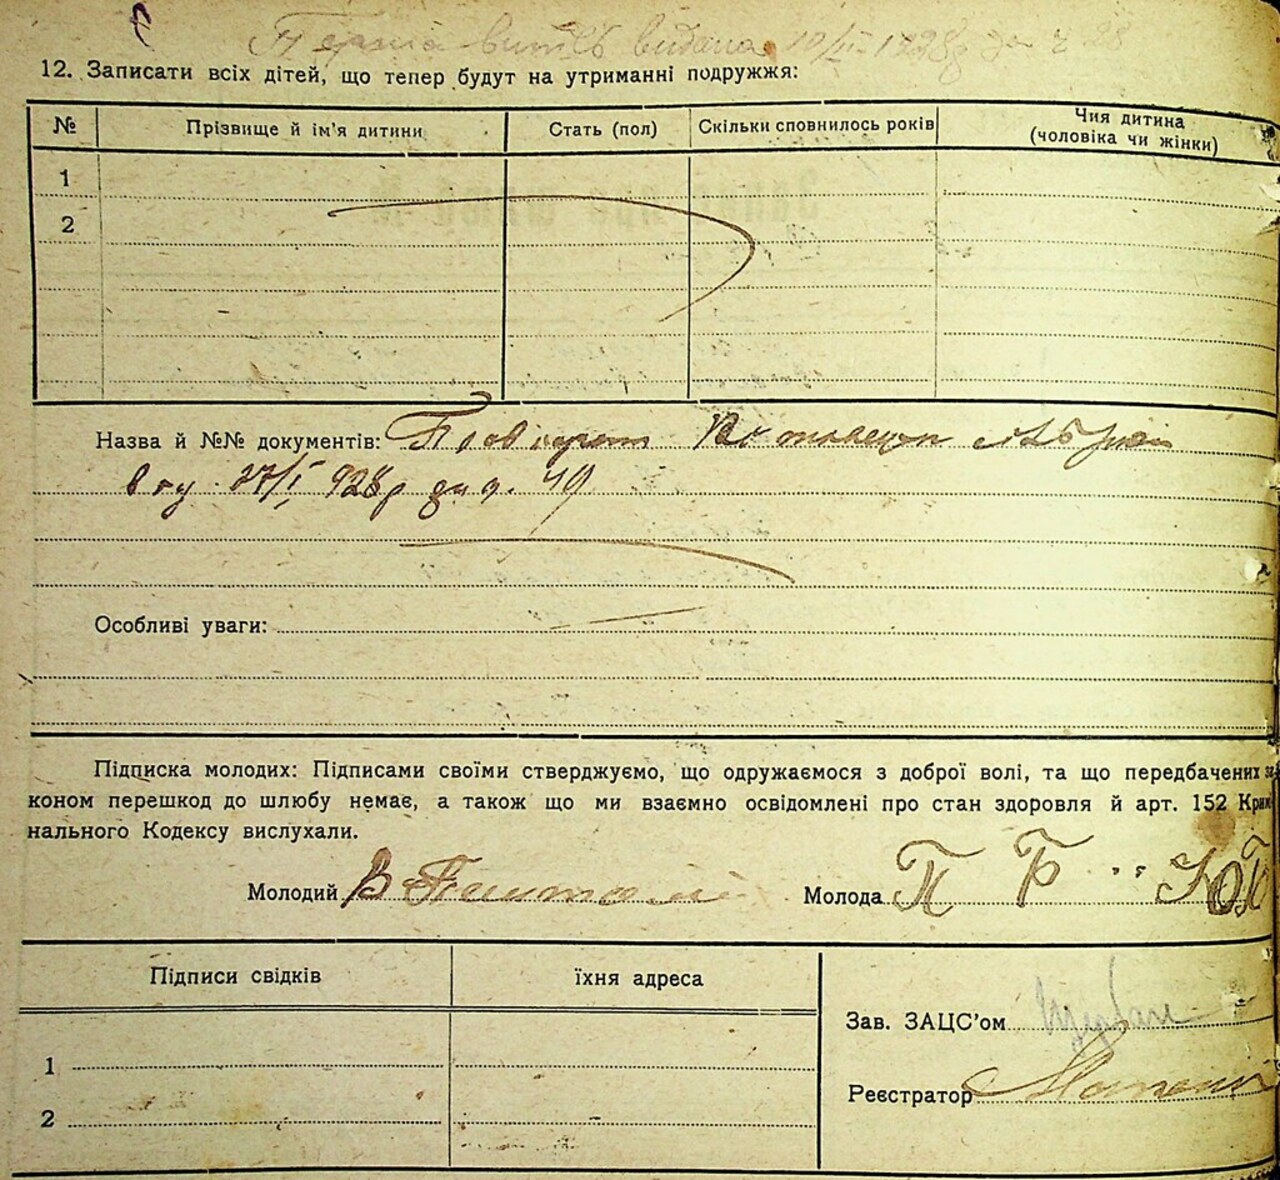 видана 10/II 1928р за ч 28
12. Записати всіх дітей, що тепер будут на утриманні подружжя:
№ Прізвище й ім'я дитини Стать (пол) Скільки сповнилось років Чия дитина (чоловіка чи жінки)
1
2
Назва й №№ документів:
27/I 928р за ч. 49
Особливі уваги:
Підписка молодих: Підписами своїми стверджуємо, що одружаємося з доброї волі, та що передбачених за
коном перешкод до шлюбу немає, а також що ми взаємно освідомлені про стан здоровля й арт. 152 Крим
нального Кодексу вислухали.
Молодий В Молода П Р
Підписи свідків їхня адреса
Зав. ЗАЦС'ом
1
Реєстратор
2